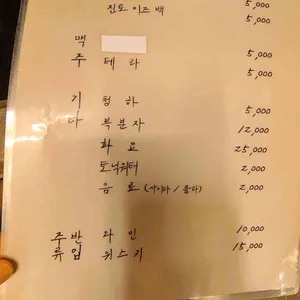 진도 이즈백 5,000
5,000
맥
주 테라 5,000
5,000
기 청하 5,000
타 복분자 12,000
화요 25,000
토닉워터 2,000
음료 (사이다 / 콜라) 2,000
주 반 와인 10,000
류 입 위스키 15,000